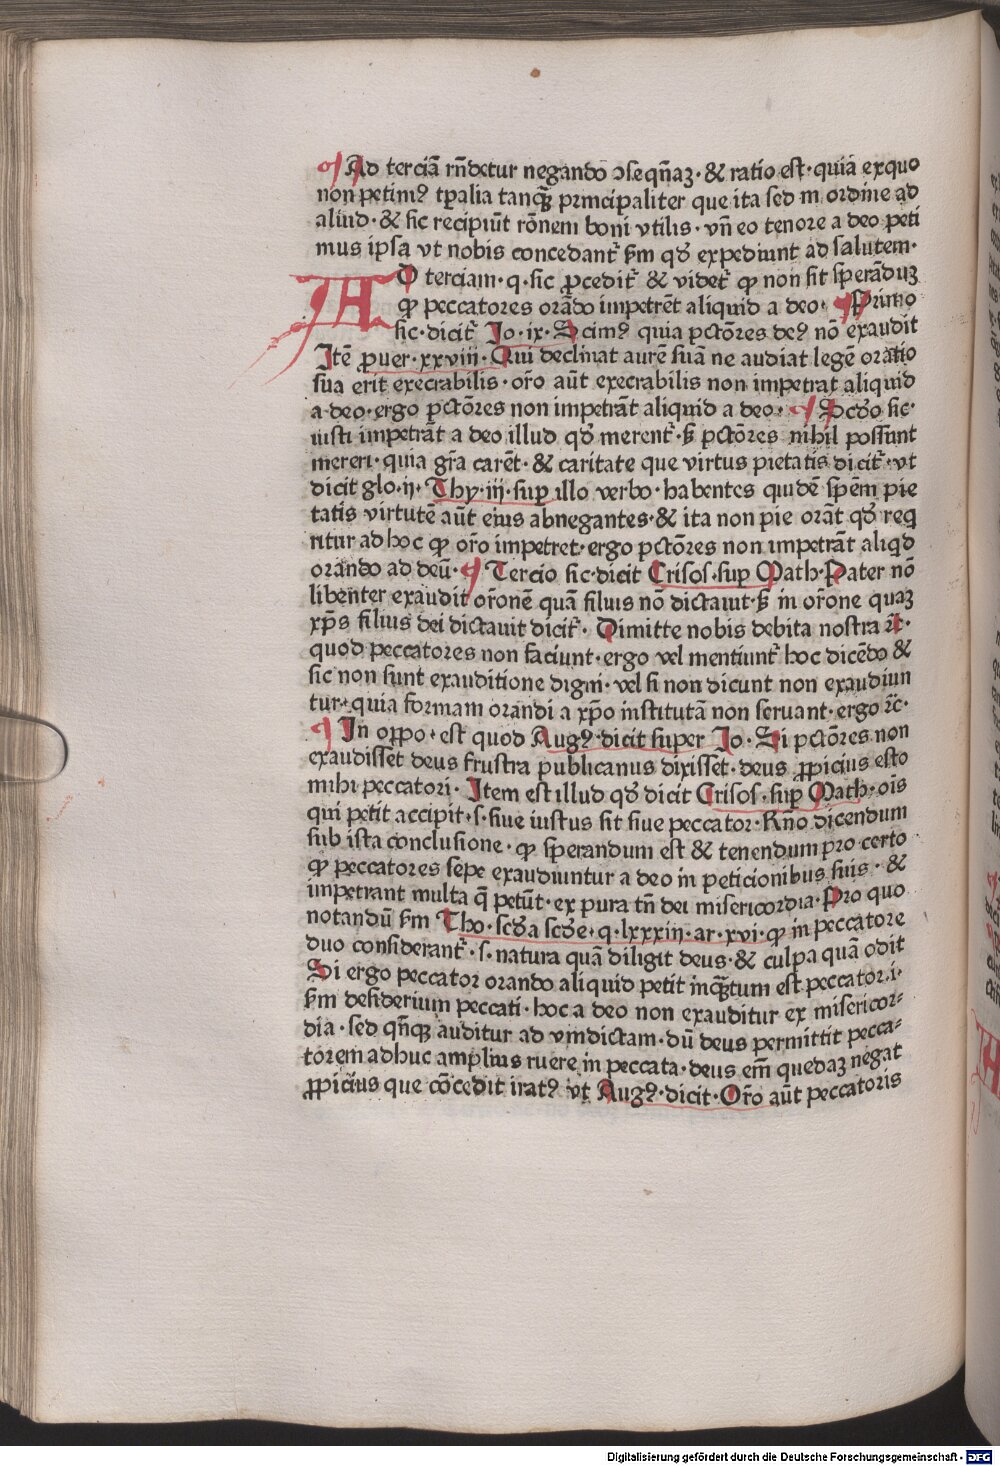 ¶ Ad terciā rn̄detur negando ↄseqn̄aꝫ· & ratio est· quia exquo
non petimꝰ tꝑalia tanqꝫ principaliter que ita sed in ordine ad
aliud· & sic recipiūt rōnem boni vtilis· vn̄ eo tenore a deo peti
mus ipsa vt nobis concedant᷑ ẜm qđ expediunt ad salutem·
AD terciam·q·sic ꝓcedit᷑ & videt᷑ ꝙ non sit sperāduꝫ
ꝙ peccatores orādo impetrēt aliquid a deo· ¶ Primo
sic·dicit᷑ Jo·ix·Scimꝰ quia pctōres deꝰ nō exaudit
Jtē ꝓuer·xxviii·Qui declinat aurē suā ne audiat legē oratio
sua erit execrabilis·or̄o aūt execrabilis non impetrat aliquid
a deo·ergo pctōres non impetrāt aliquid a deo· ¶ Scđo sic·
iusti impetrāt a deo illud qđ merent᷑·ẜ pctōres nihil possunt
mereri·quia gr̄a carēt·& caritate que virtus pietatis dicit᷑·vt
dicit glo·ii·Thy·iii·suꝑ illo verbo·habentes quidē spēm pie
tatis virtutē aūt eius abnegantes·& ita non pie orāt qđ req
ritur ad hoc ꝙ or̄o impetret·ergo pctōres non impetrāt aliqd
orando ad deū· ¶ Tercio sic·dicit Crisos·suꝑ Math·Pater nō
libenter exaudit or̄onē quā filius nō dictauit·ẜ in or̄one quaꝫ
xp̄s filius dei dictauit dicit᷑· Dimitte nobis debita nostra ⁊c̄·
quod peccatores non faciunt·ergo vel mentiunt᷑ hoc dicēdo &
sic non sunt exauditione digni·vel si non dicunt non exaudiun
tur·quia formam orandi a xp̄o institutā non seruant·ergo ⁊c̄·
¶ Jn oppo·est quod Augꝰ·dicit super Jo·Si pctōres non
exaudisset deus frustra publicanus dixisset·deus ꝓpicius esto
mihi peccatori· Jtem est illud qđ dicit Crisos·suꝑ Math·oīs
qui petit accipit·s·siue iustus sit siue peccator·Rn̄o dicendum
sub ista conclusione·ꝙ sperandum est & tenendum pro certo
ꝙ peccatores sepe exaudiuntur a deo in peticionibus suis· &
impetrant multa q̄ petūt·ex pura tn̄ dei misericordia·Pro quo
notandū ẜm Tho·scđa scđe·q·lxxxiii·ar·xvi·ꝙ in peccatore
duo considerant᷑·s·natura quā diligit deus·& culpa quā odit
Si ergo peccator orando aliquid petit inqꝫtum est peccator·i·
ẜm desiderium peccati·hoc a deo non exauditur ex misericor⸗
dia·sed qn̄qꝫ auditur ad vindictam·dū deus permittit pecca⸗
torem adhuc amplius ruere in peccata·deus em̄ quedaꝫ negat
ꝓpicius que cōcedit iratꝰ vt Augꝰ·dicit·Or̄o aūt peccatoris
Digitalisierung gefördert durch die Deutsche Forschungsgemeinschaft - DFG